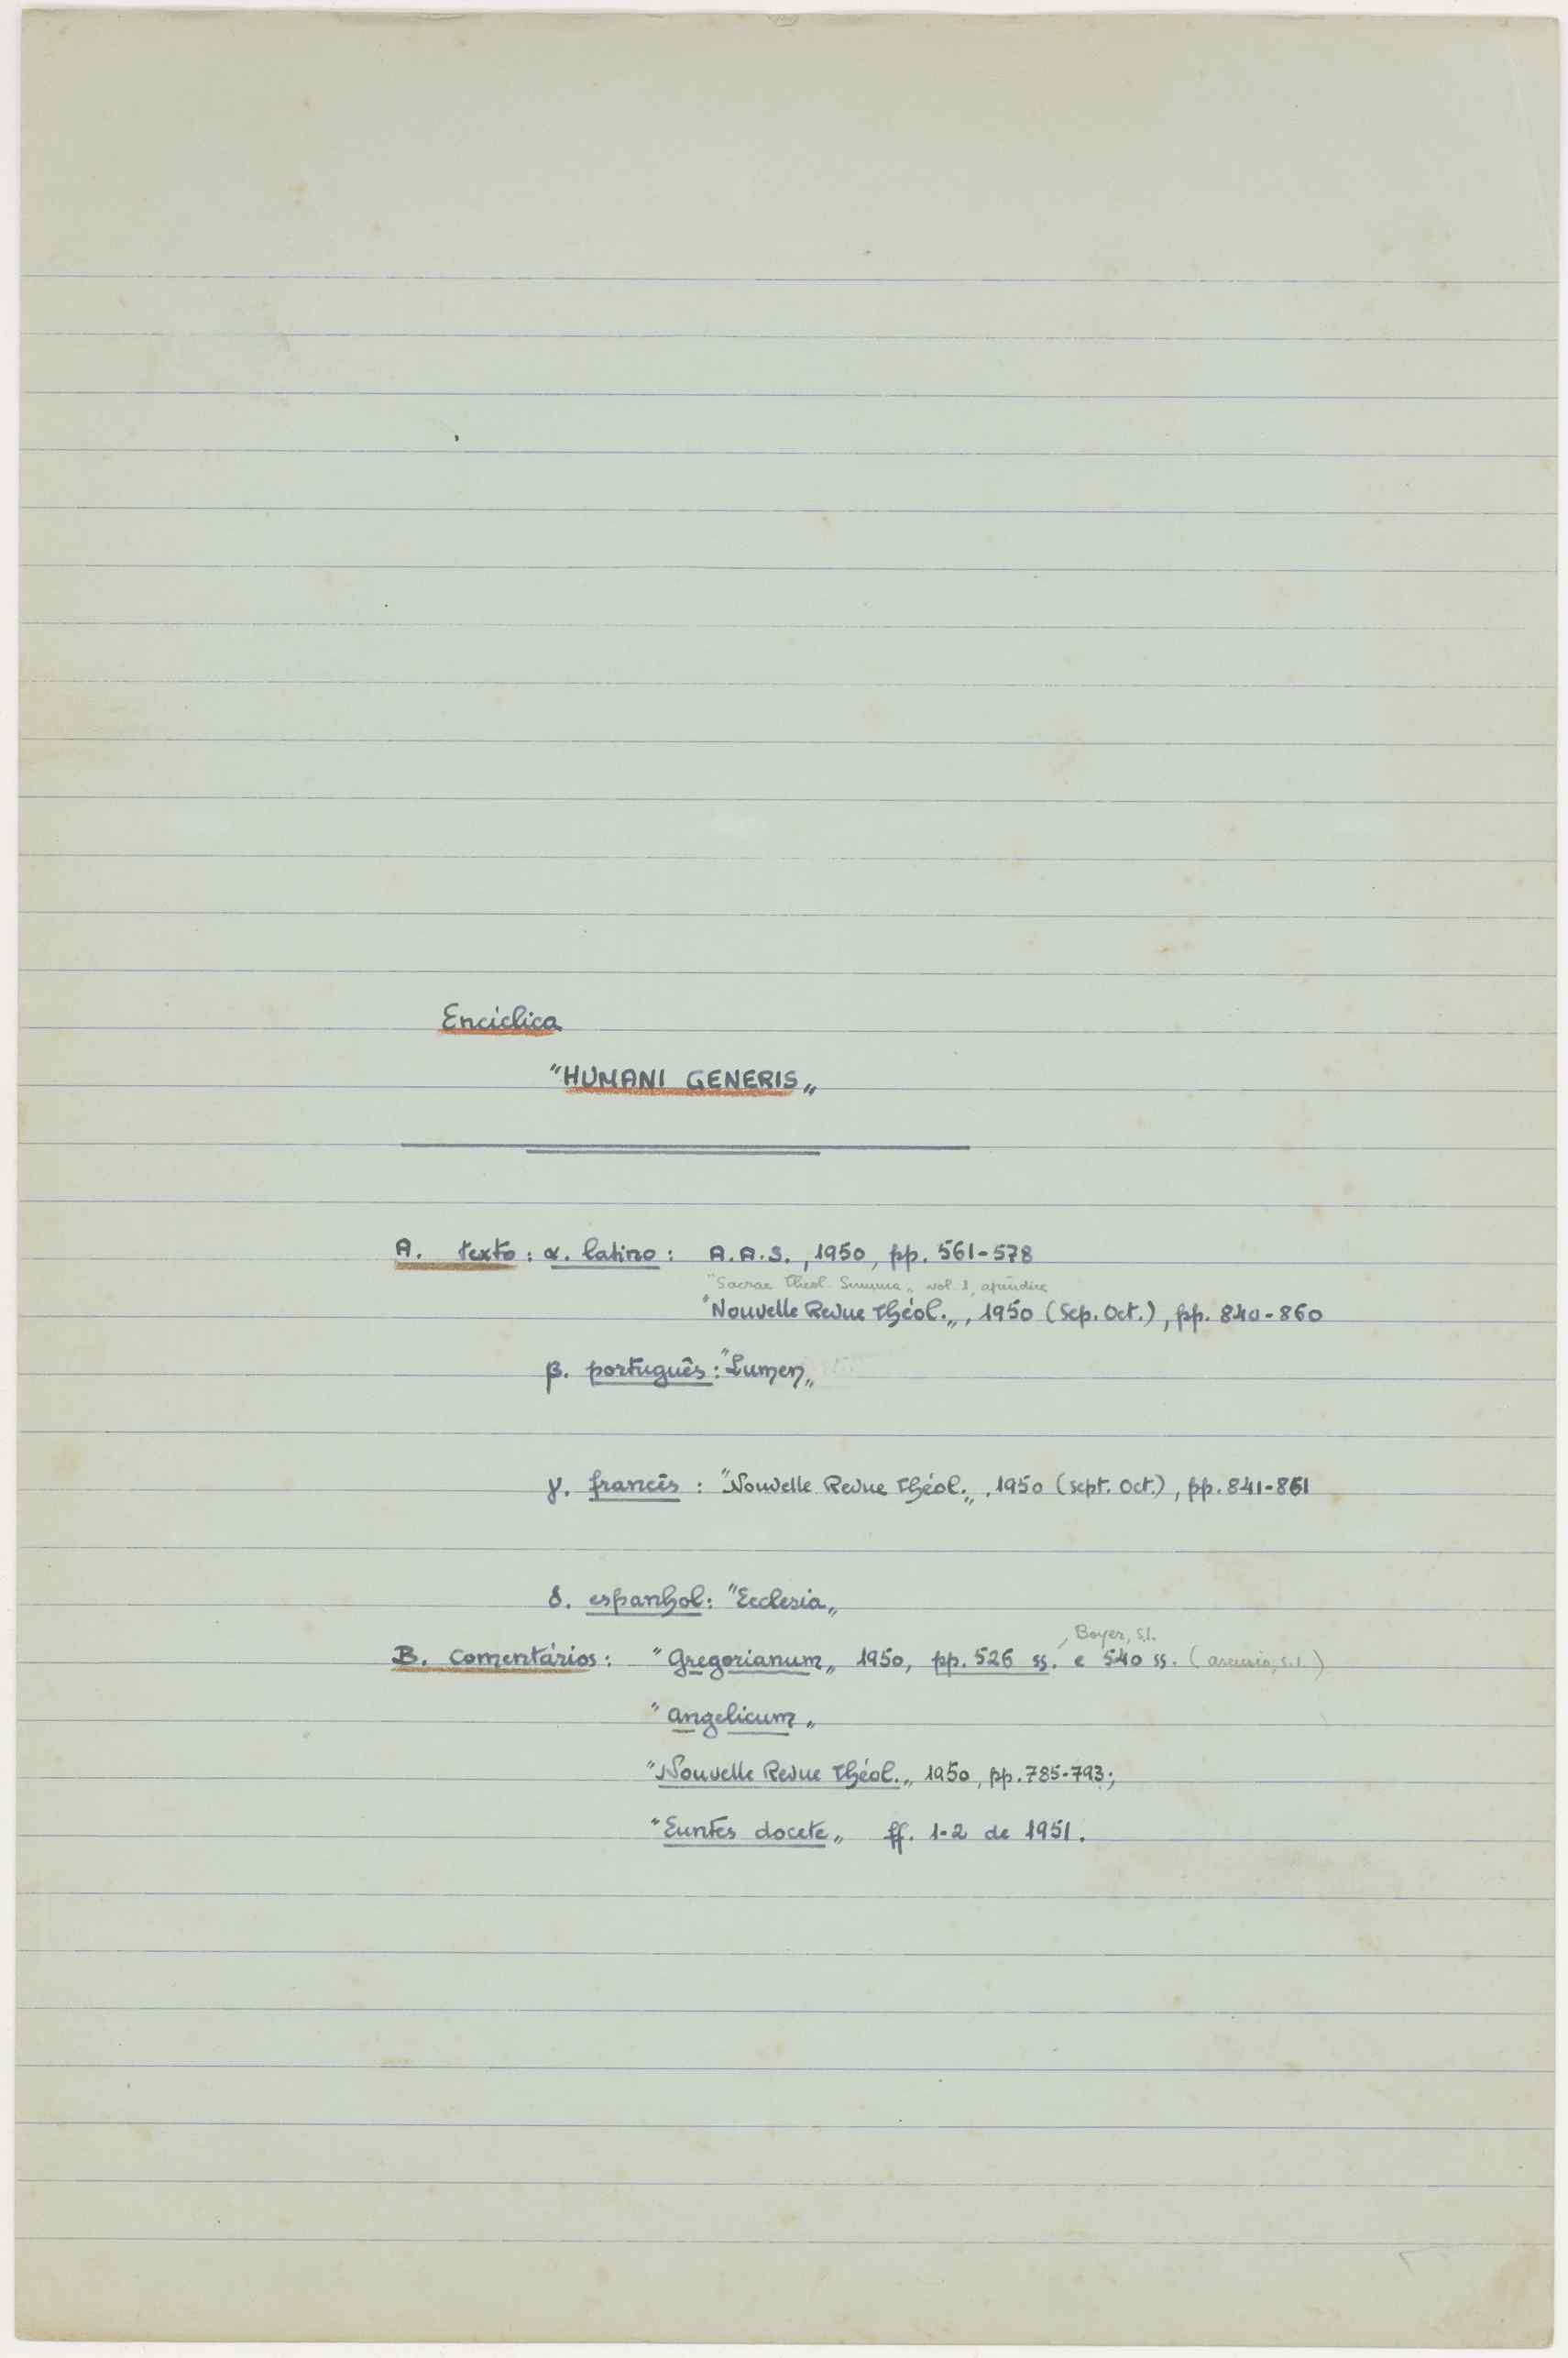 Encíclica
"HUMANI GENERIS„
A. texto: α. latino: A.A.S., 1950, pp. 561-578
"Sacrae Theol. Summa„ vol. 1, apêndice
"Nouvelle Revue Théol.„, 1950 (Sep. Oct.), pp. 840-860
β. português: "Lumen„
γ. francês: "Nouvelle Revue Théol.„, 1950 (sept. Oct.), pp. 841-861
δ. espanhol: "Ecclesia„
, Boyer, S.I.
B. comentários: "Gregorianum„ 1950, pp. 526 ss. e 540 ss. ( S.I.)
"Angelicum„
"Nouvelle Revue Théol.„ 1950, pp. 785-793;
"Euntes docete„ ff. 1-2 de 1951.